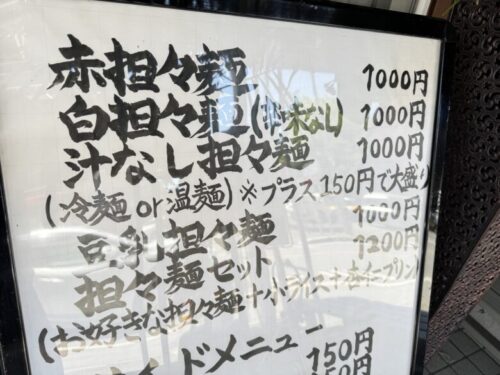 赤担々麺 1000円
白担々麺(辛味なし) 1000円
汁なし担々麺 1000円
(冷麺or温麺)※プラス150円で大盛り
豆乳担々麺 1000円
担々麺セット 1200円
(お好きな担々麺+小ライス+杏イープリン
ドメニュー
150円